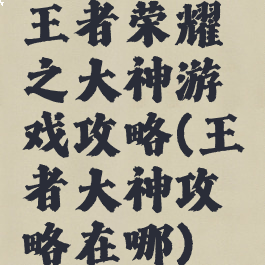 王者荣耀
之大神游
戏攻略(王
者大神攻
略在哪)